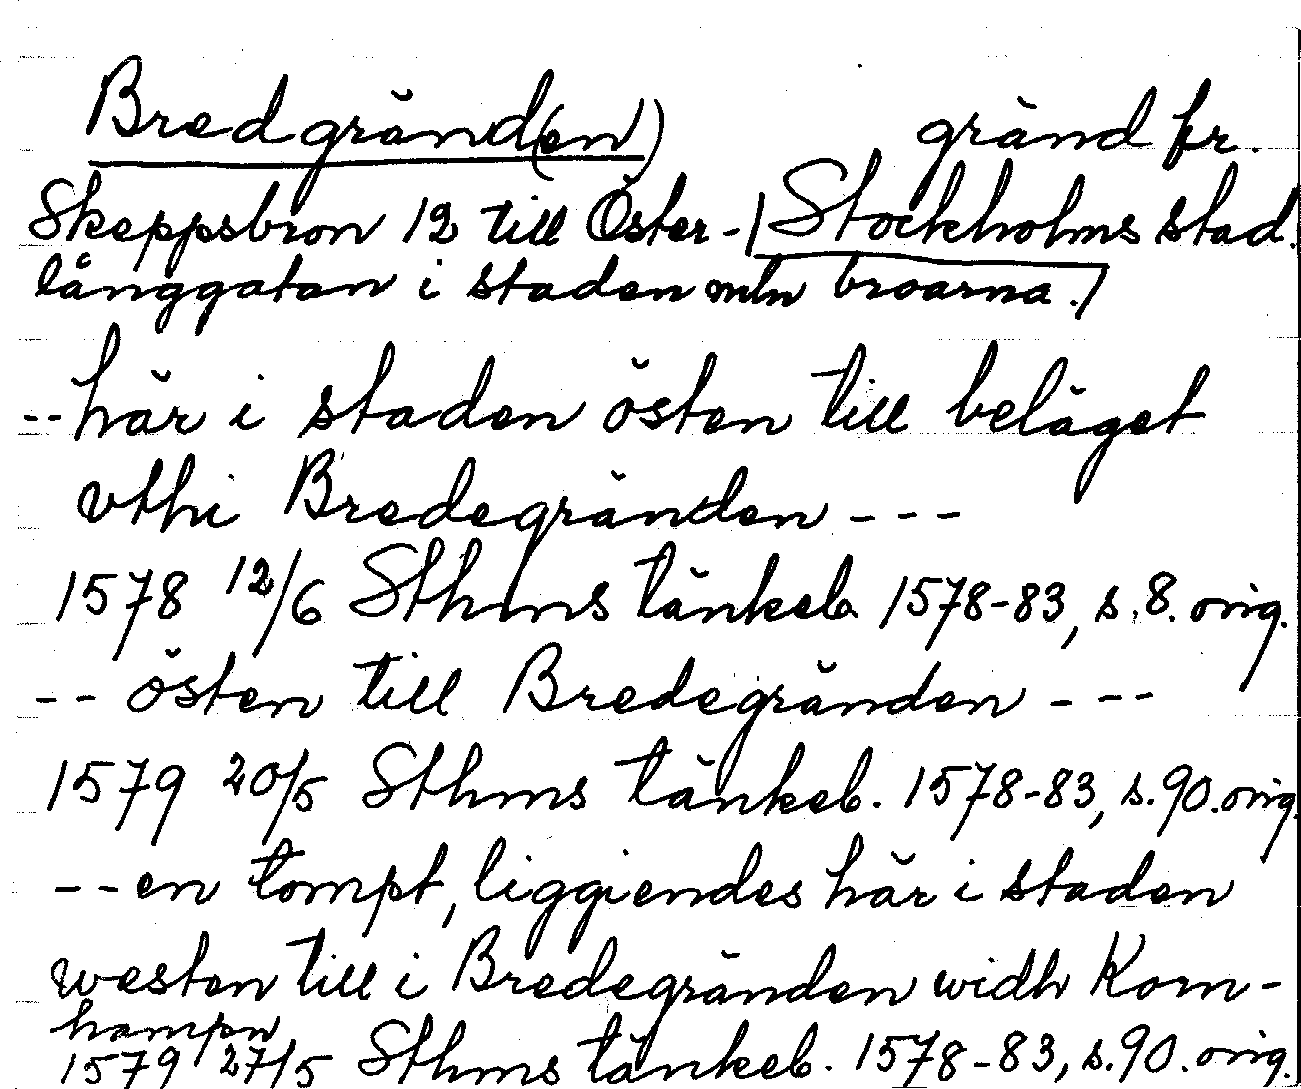 Bredgränd(en) gränd fr.
Skeppsbron 12 till Öster-/Stockholms stad.
långgatan i staden mln broarna./
--här i staden östen till beläget
vthi Bredegränden ---
1578 12/6 Sthms tänkeb. 1578-83, s.8. orig.
-- östen till Bredegränden ---
1579 20/5 Sthms tänkeb. 1578-83, s.90. orig.
--en tompt, liggiendes här i staden
westen till i Bredegränden widh Korn-
hampn
1579 27/5 Sthms tänkeb. 1578-83, s.90. orig.